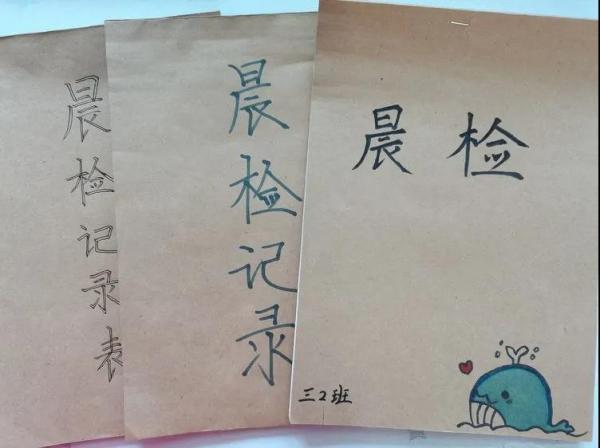 晨检记录表
晨检记录
晨检
三2班